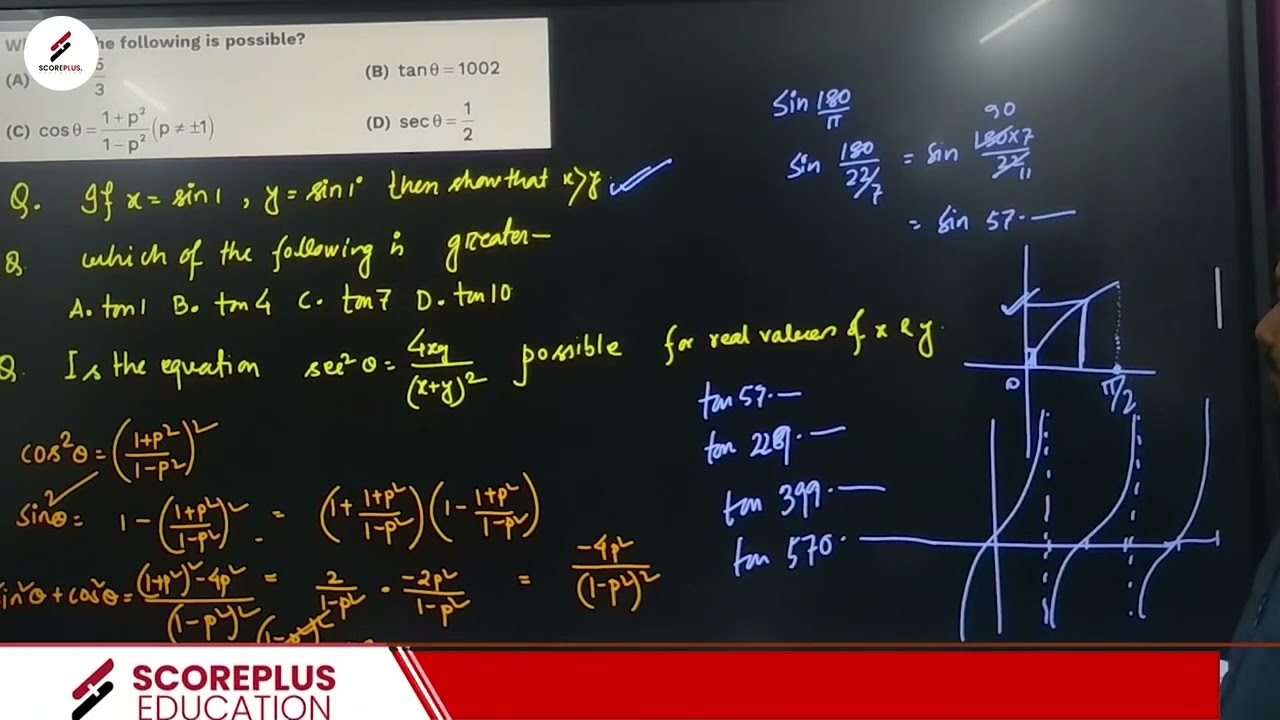 SCOREPLUS.
EDUCATION
he following is possible?
(A) 5/3
(B) tanθ = 1002
(C) cosθ = (1+p²)/(1−p²) (p ≠ ±1)
(D) secθ = 1/2
Q. If x = sin1, y = sin1° then show that x>y.
Q. which of the following is greater—
A. tan1 B. tan4 C. tan7 D. tan10
Q. Is the equation sec²θ = 4xy/(x+y)² possible for real values of x & y.
cos²θ = ((1+p²)/(1−p²))²
sin²θ = 1 − ((1+p²)/(1−p²))² = (1 + (1+p²)/(1−p²)) (1 − (1+p²)/(1−p²))
= 2/(1−p²) · −2p²/(1−p²) = −4p²/(1−p²)²
sin²θ + cos²θ = ((1+p²)² − 4p²)/(1−p²)²
sin 180/π
sin 180/(22/7) = sin (180×7)/22
90
11
= sin 57.—
0
π/2
tan 57.—
tan 229.—
tan 399.—
tan 570.—
SCOREPLUS
EDUCATION